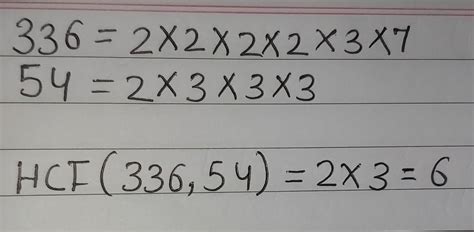 336 = 2×2×2×2×3×7
54 = 2×3×3×3
HCF(336,54) = 2×3 = 6